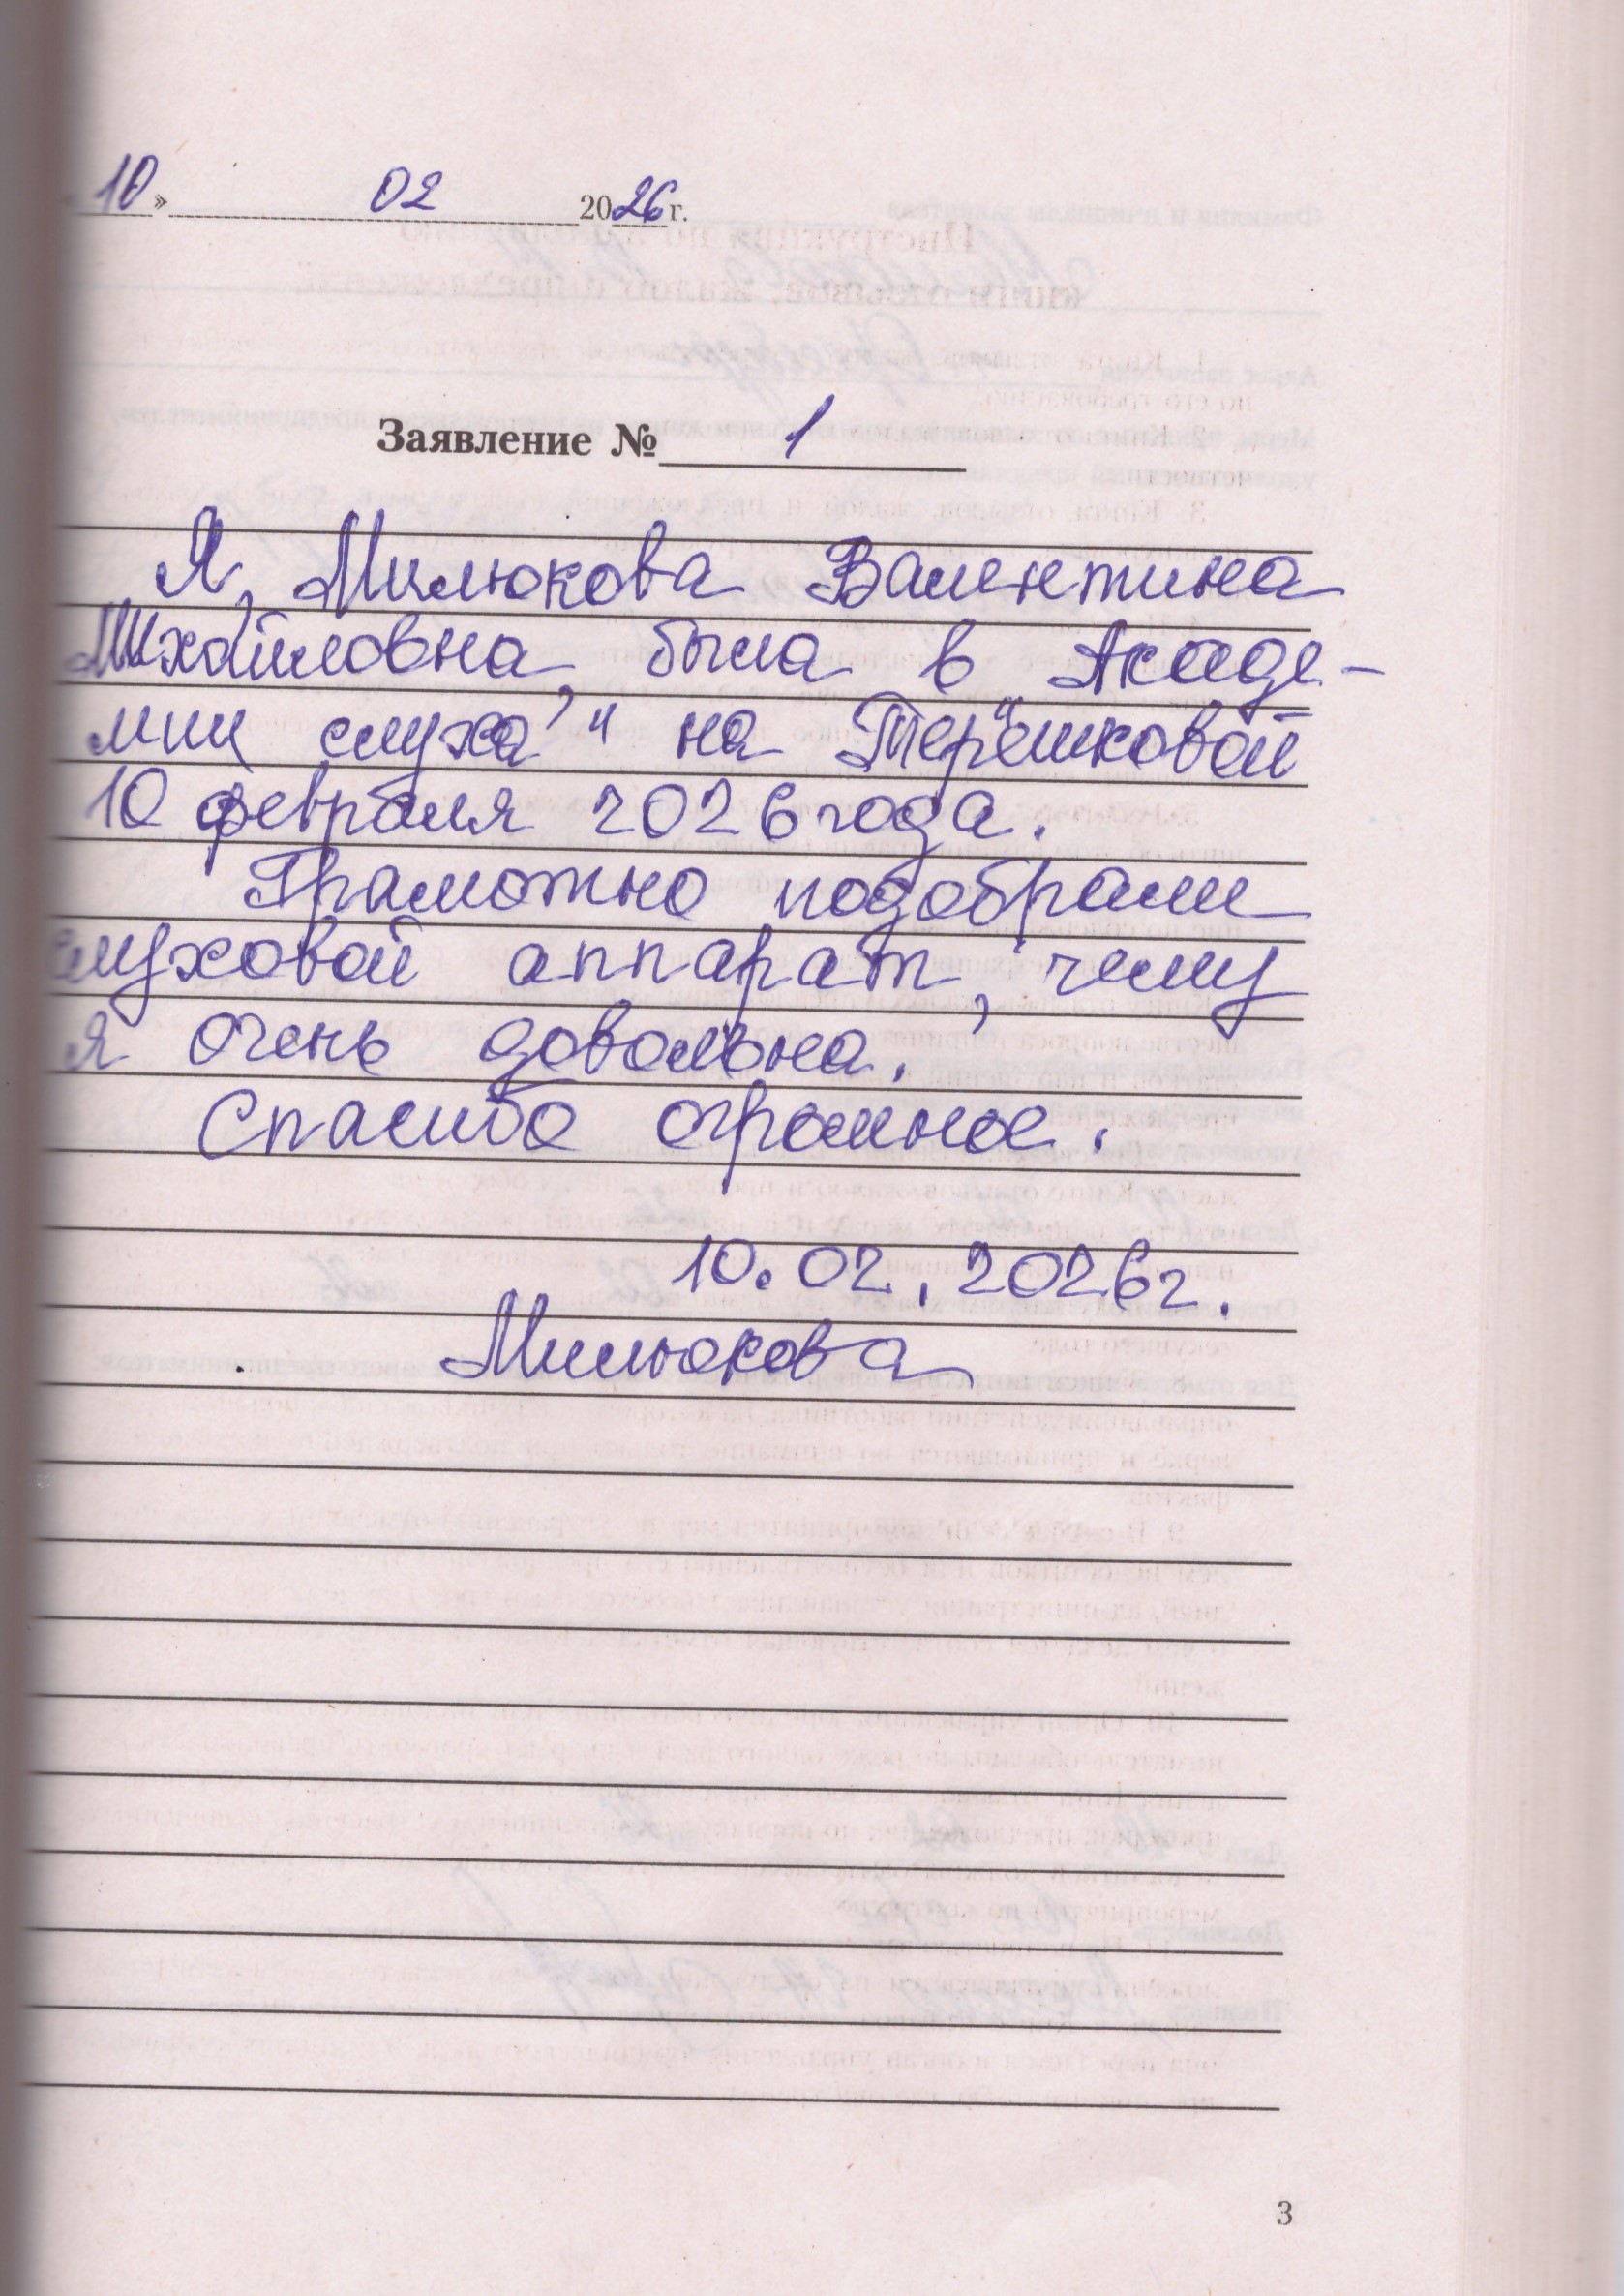 10» 02 2026 г.
Заявление № 1
Я, Милюкова Валентина
Михайловна, была в Акаде-
мии слуха" на Терешковой
10 февраля 2026 года.
Грамотно подобрали
слуховой аппарат, чему
я очень довольна.
Спасибо огромное.
10.02.2026г.
Милюкова
3